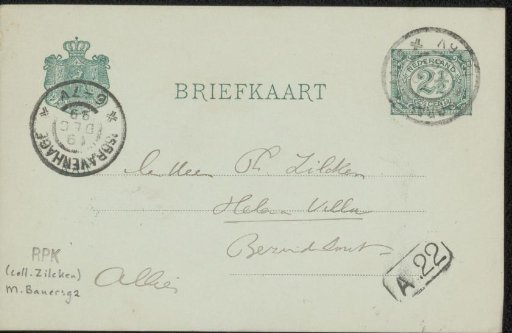 BRIEFKAART
NEDERLAND
2½
CENT
'SGRAVENHAGE
19
DEC
99
6-7V
Ph. Zilcken
Helena Villa
Bezuidenhout
A 22
RPK
(coll. Zilcken)
M. Bauer